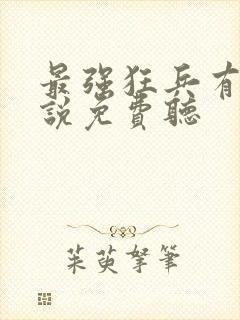 最強狂兵有
說免費聽
茱萸拏筆